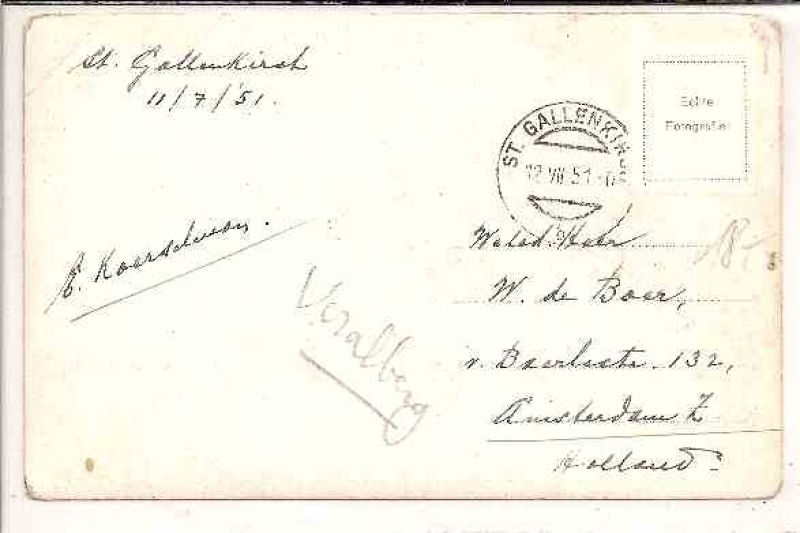 St. Gallenkirch
11/7/51.
E. Koersdman.
Vzalberg
ST. GALLENKIRCH
12.VII.51
Echte
Fotografie
Weled. Heer
W. de Boer,
v. Baerlestr. 132,
Amsterdam Z
Holland